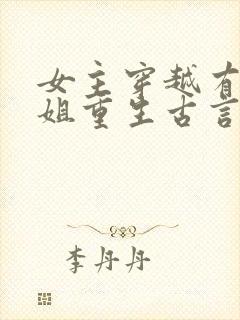 女主穿越有
姐重生古言
李丹丹